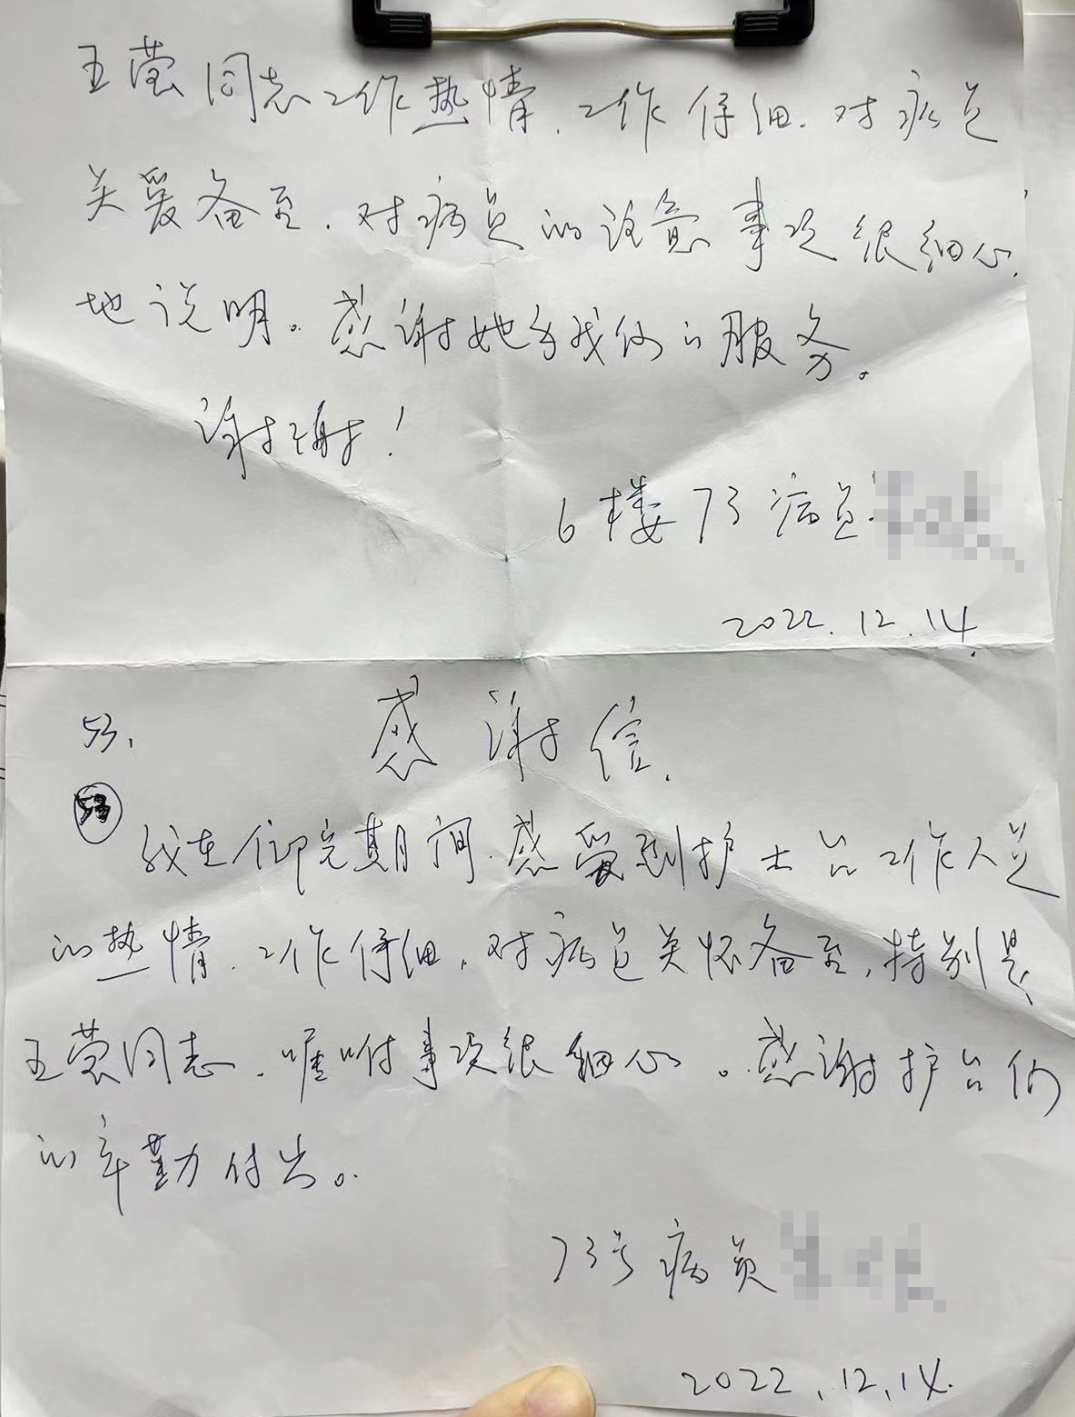 王莹同志工作热情、工作仔细、对病员
关爱备至、对病员的注意事项很细心
地说明。感谢她为我们的服务。
谢谢!
6楼73病员
2022.12.14
53、
感谢信
53
我在住院期间、感受到护士台工作人员
的热情、工作仔细、对病员关怀备至，特别是
王莹同志、嘱咐事项很细心。感谢护台们
的辛勤付出。
73号病员
2022.12.14.